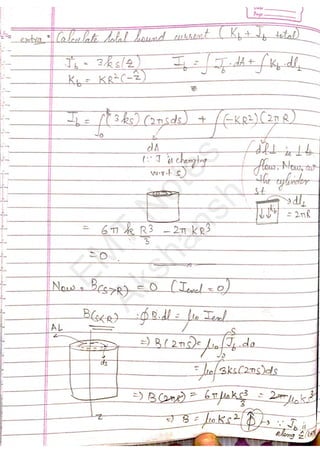 Date
Page
extra * Calculate total bound current (K_b + J_b total)
J_b = 3ks(ẑ)    I_b = ∫J_b·dA + ∫K_b·dl⊥
K_b = KR²(-ẑ)
I_b = ∫₀ᴿ(3ks)(2πsds) + ∫(-KR²)(2πR)
dA
(∵ J is changing
w.r.t s)
dl⊥ is ⊥ to
flow. Now, cut
the cylinder
st
→dl⊥
= 2πR
= 6πk R³/3 - 2πKR³
= 0
Now = B(s>R) = 0 (I_encl = 0)
B(s<R) : ∮B.dl = μ₀ I_encl
AL
ds
z
⇒ B(2πs) = μ₀∫J_b.da
= μ₀∫3ks(2πs)ds
⇒ B(2πs) = 6πμ₀ks³/3 = 2πμ₀ks³
⇒ B = μ₀Ks² (φ̂) → ∵ J_b is
along ẑ
EMT Notes
Akshansh